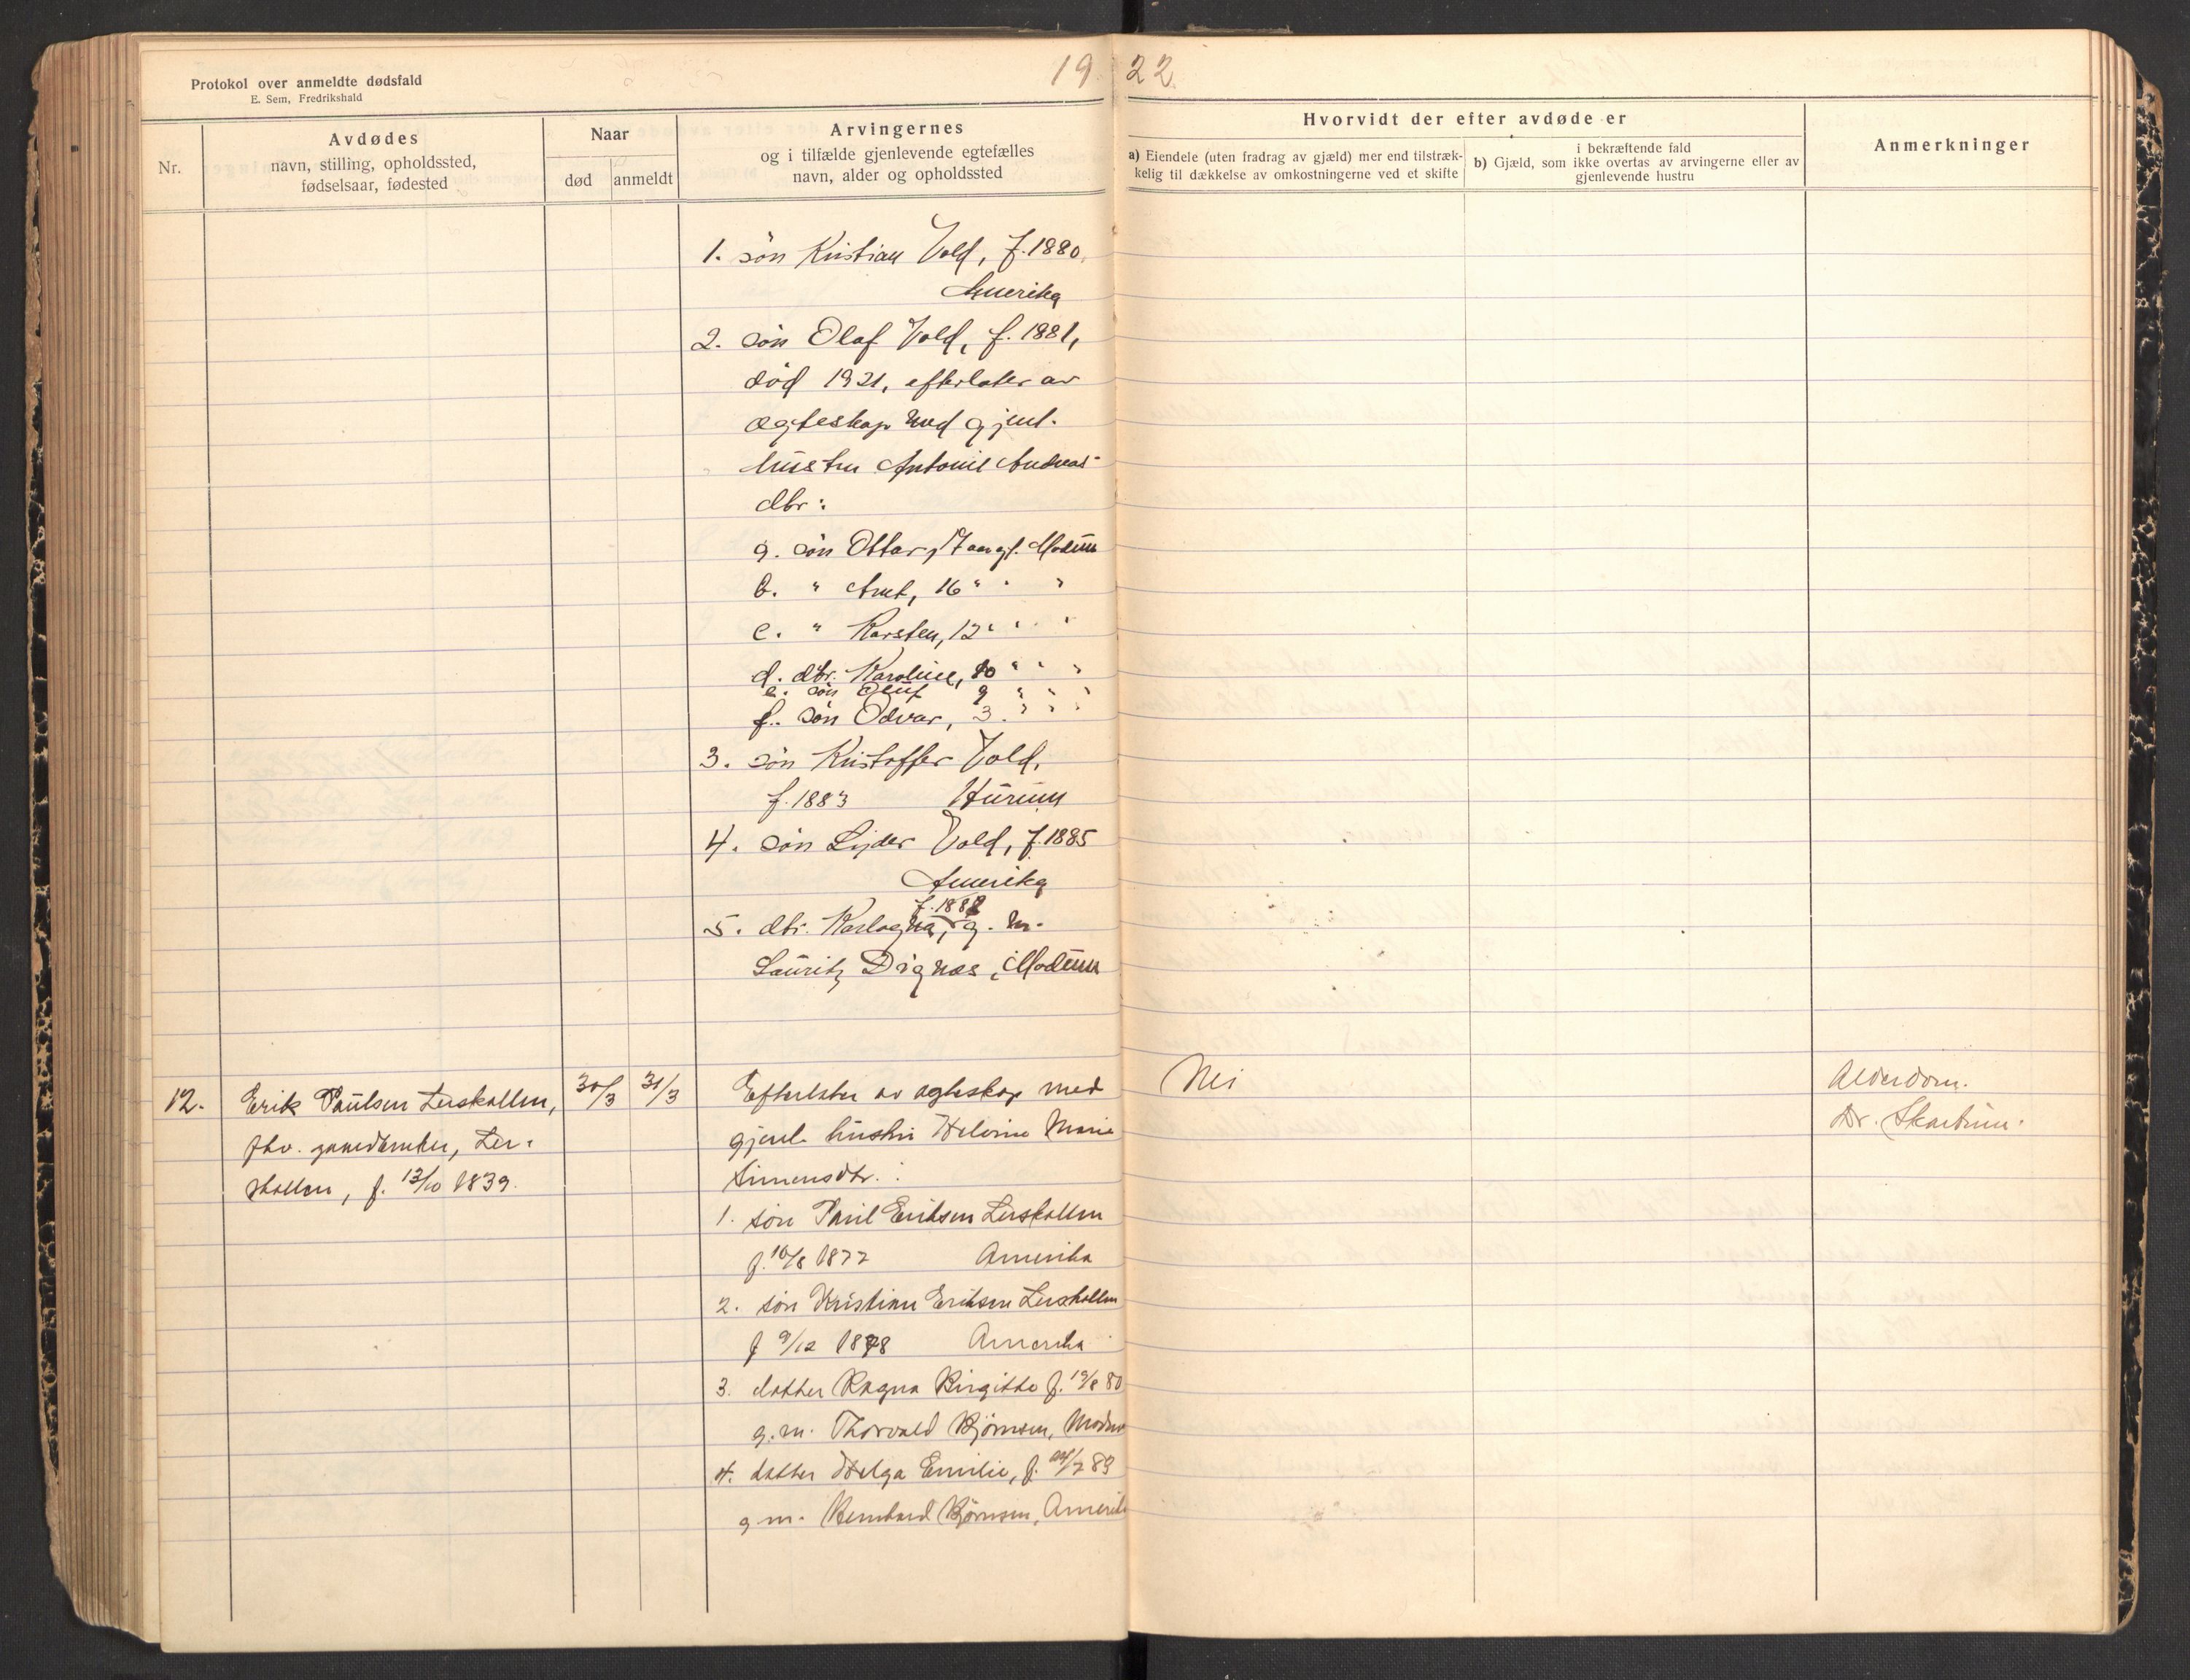 Protokol over anmeldte dødsfald
E. Sem, Fredrikshald
19 22
Nr.
Avdødes
navn, stilling, opholdssted,
fødselsaar, fødested
Naar
død
anmeldt
Arvingernes
og i tilfælde gjenlevende egtefælles
navn, alder og opholdssted
Hvorvidt der efter avdøde er
a) Eiendele (uten fradrag av gjæld) mer end tilstræk-
kelig til dækkelse av omkostningerne ved et skifte
i bekræftende fald
b) Gjæld, som ikke overtas av arvingerne eller av
gjenlevende hustru
Anmerkninger
1. søn Kristian Vold, f. 1880,
Amerika
2. søn Olaf Vold, f. 1881,
død 1921, efterlater av
ægteskap med gjenl.
hustru Antonie Andreas-
dtr:
a. søn Ottar, 17 aar gl. Modum
b. " Arnt, 16 " " "
c. " Karsten, 12 " " "
d. dtr. Karoline, 10 " " "
e. søn Oluf 9 " " "
f. søn Odvar, 3 " " "
3. søn Kristoffer Vold,
f. 1883 Hurum
4. søn Lyder Vold, f. 1885
Amerika
f. 1888
5. dtr. Karlagna, g. m.
Lauritz Dignæs, Modum
12.
Erik Paulsen Lerskallen,
fhv. gaardbruker, Ler-
skallen, f. 13/10 1839.
30/3
31/3
Efterlater av ægteskap med
gjenl. hustru Helerine Marie
Simensdtr. :
1. søn Paul Eriksen Lerskallen
f. 10/8 1877 Amerika
2. søn Kristian Eriksen Lerskallen
f 9/12 1878 Amerika
3. datter Ragna Birgitte f. 19/8 80
g. m. Thorvald Bjørnsen, Modum
4. datter Helga Emilie, f. /7 83
g m. Bernhard Bjørnsen, Amerika
Nei
Alderdom.
Dr. Skartum.